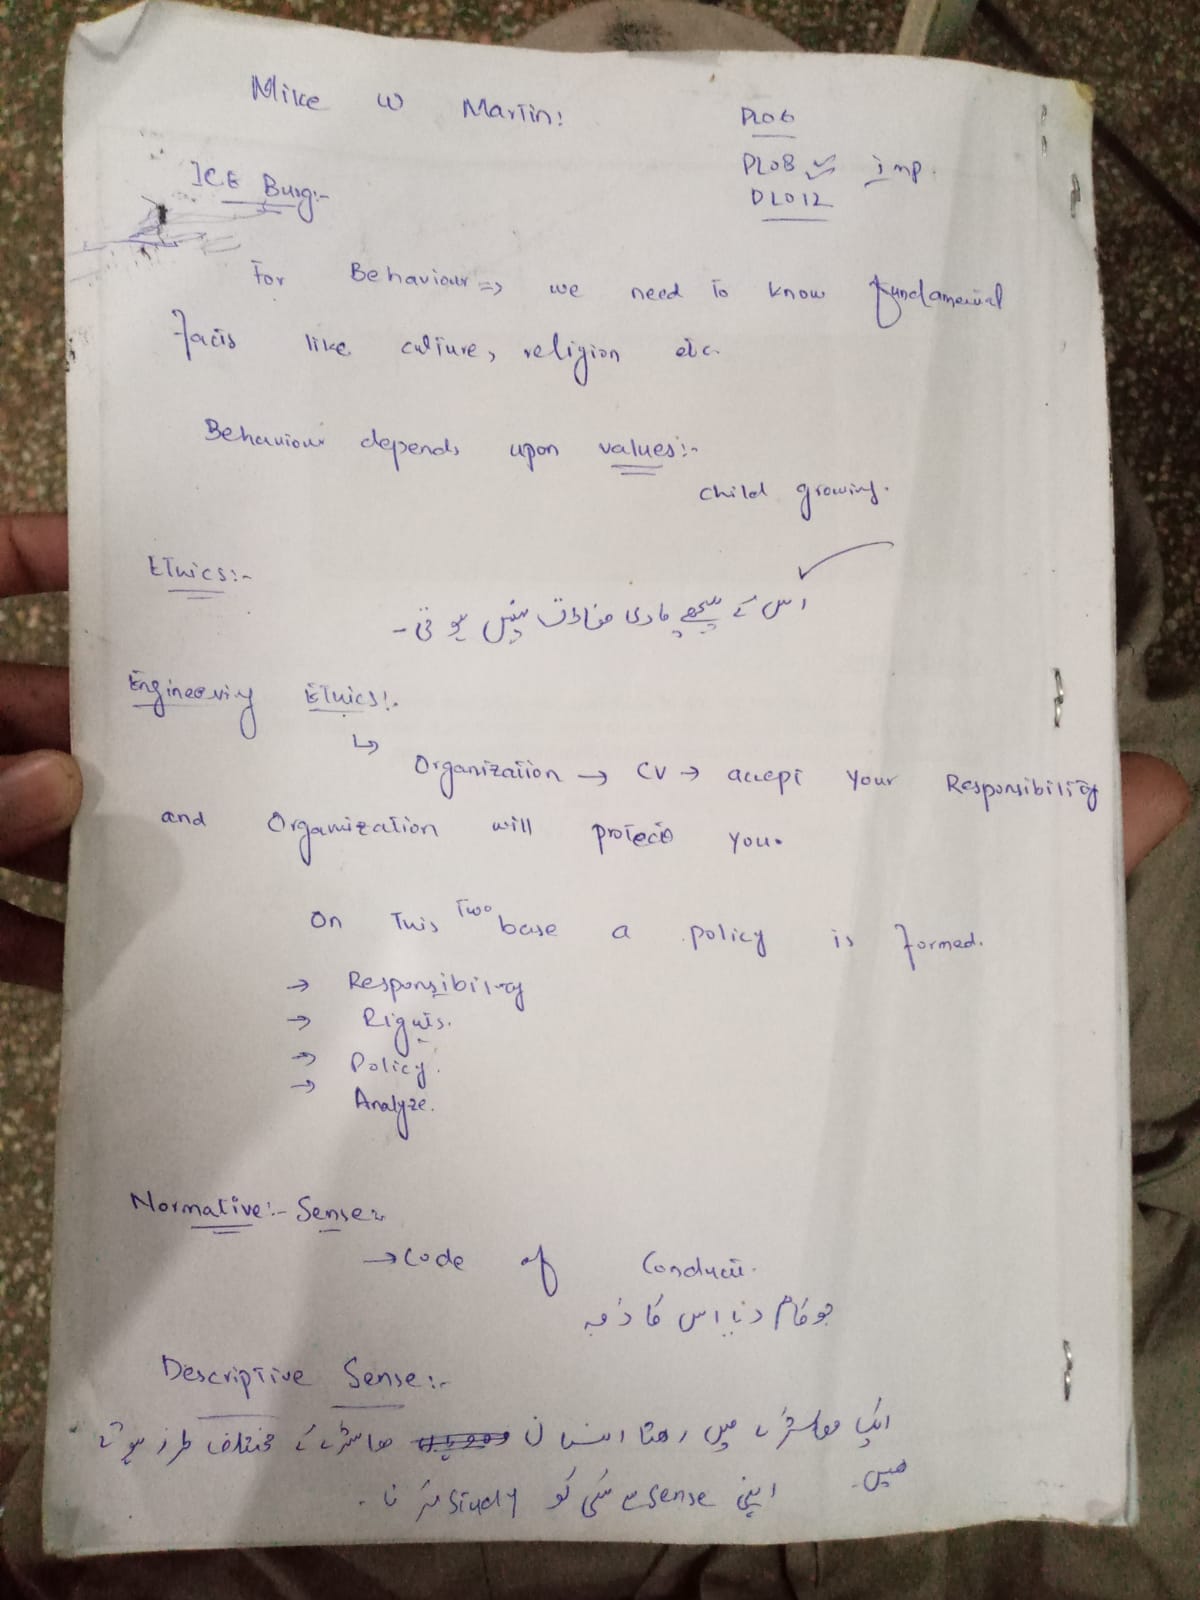 Mike W Martin:
PLO6
PLO8 imp.
PLO12
ICE Burg:-
For Behaviour => we need to know fundamental
facts like culture, religion etc.
Behaviour depends upon values:-
child growing.
Ethics:-
اس کے پیچھے مادی مفادات نہیں ہوتی۔
Engineering Ethics:-
↳ Organization → CV → accept your Responsibility
and Organization will protect you.
On This Two base a policy is formed.
→ Responsibility
→ Rights.
→ Policy.
→ Analyze.
Normative:- Sense:
→ Code of Conduct.
جو کام دیا اس کا ذمہ
Descriptive Sense:-
ایک معاشرے میں رہتا انسان معاشرے کے مختلف طرز ہوتے
ہیں۔ اپنی sense سے کسی کو study کرنا۔